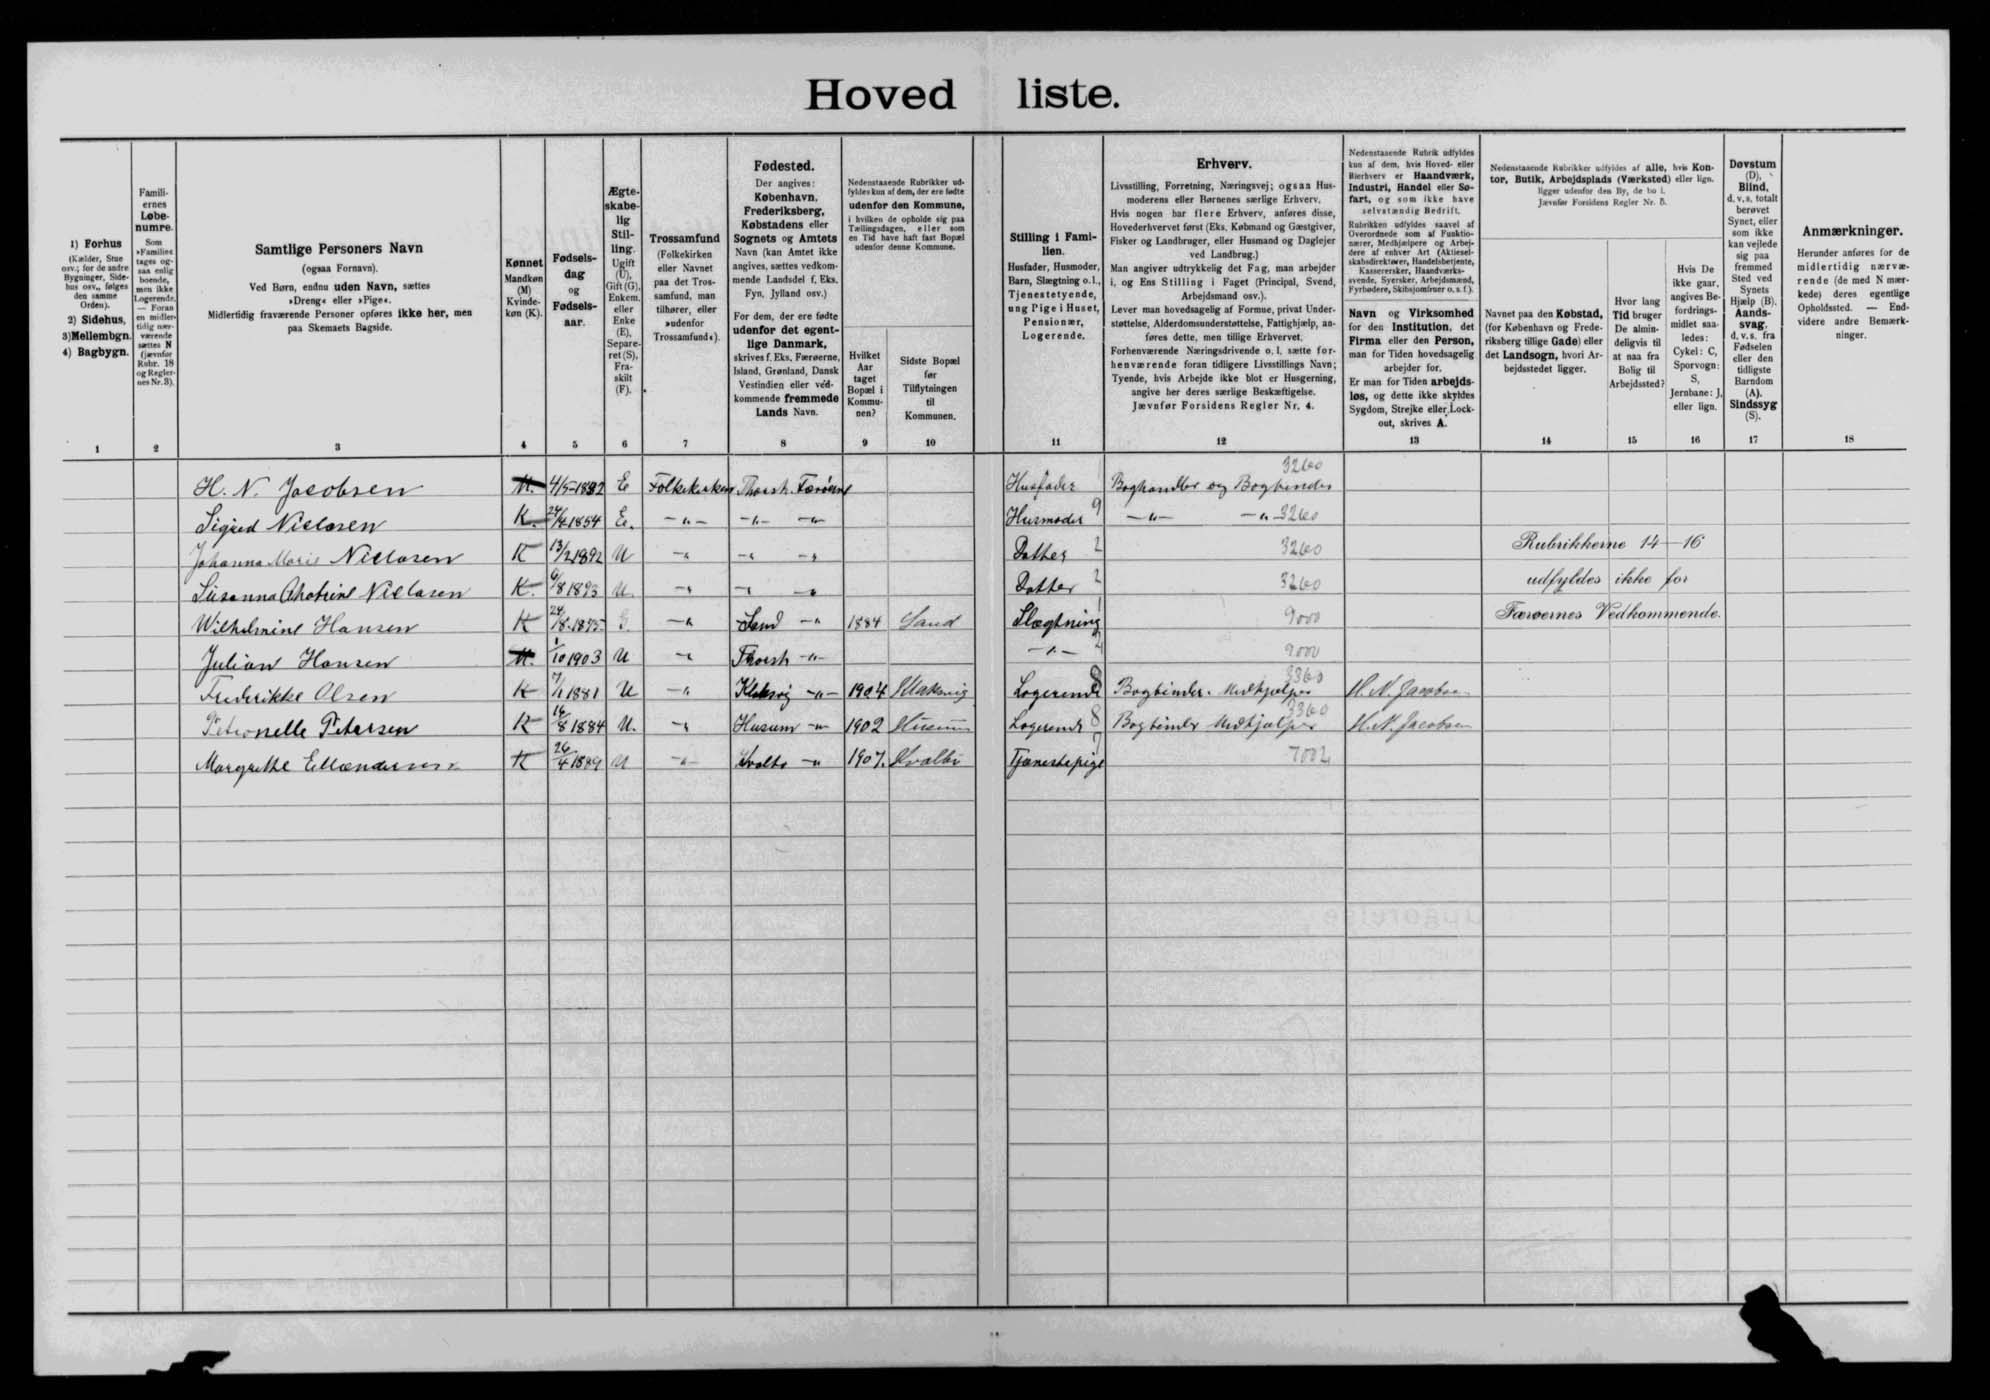 Hovedliste.
1) Forhus
(Kælder, Stue
osv.; for de andre
Bygninger, Side-
hus osv., følges
den samme
Orden).
2) Sidehus,
3) Mellembgn.
4) Bagbygn.
1
Famili-
ernes
Løbe-
numre.
Som
»Familie«
tages og-
saa enlig
boende,
men ikke
Logerende.
— Foran
en midler-
tidig nær-
værende
sættes N
(jævnfør
Rubr. 18
og Regler-
nes Nr. 3).
2
Samtlige Personers Navn
(ogsaa Fornavn).
Ved Børn, endnu uden Navn, sættes
»Dreng« eller »Pige«.
Midlertidig fraværende Personer opføres ikke her, men
paa Skemaets Bagside.
3
Kønnet
Mandkøn
(M)
Kvinde-
køn (K).
4
Fødsels-
dag
og
Fødsels-
aar.
5
Ægte-
skabe-
lig
Stil-
ling.
Ugift
(U),
Gift (G),
Enkem.
eller
Enke
(E),
Separe-
ret (S),
Fra-
skilt
(F).
6
Trossamfund
(Folkekirken
eller Navnet
paa det Tros-
samfund, man
tilhører, eller
»udenfor
Trossamfund«).
7
Fødested.
Der angives:
København,
Frederiksberg,
Købstadens eller
Sognets og Amtets
Navn (kan Amtet ikke
angives, sættes vedkom-
mende Landsdel f. Eks.
Fyn, Jylland osv.)
For dem, der ere fødte
udenfor det egent-
lige Danmark,
skrives f. Eks. Færøerne,
Island, Grønland, Dansk
Vestindien eller ved-
kommende fremmede
Lands Navn.
8
Nedenstaaende Rubrikker ud-
fyldes kun af dem, der ere fødte
udenfor den Kommune,
i hvilken de opholde sig paa
Tællingsdagen, eller som
en Tid have haft fast Bopæl
udenfor denne Kommune.
Hvilket
Aar
taget
Bopæl i
Kommu-
nen?
9
Sidste Bopæl
før
Tilflytningen
til
Kommunen.
10
Stilling i Fami-
lien.
Husfader, Husmoder,
Barn, Slægtning o.l.,
Tjenestetyende,
ung Pige i Huset,
Pensionær,
Logerende.
11
Erhverv.
Livsstilling, Forretning, Næringsvej; ogsaa Hus-
moderens eller Børnenes særlige Erhverv.
Hvis nogen bar flere Erhverv, anføres disse,
Hovederhvervet først (Eks. Købmand og Gæstgiver,
Fisker og Landbruger, eller Husmand og Daglejer
ved Landbrug.)
Man angiver udtrykkelig det Fag, man arbejder
i, og Ens Stilling i Faget (Principal, Svend,
Arbejdsmand osv.).
Lever man hovedsagelig af Formue, privat Under-
støttelse, Alderdomsunderstøttelse, Fattighjælp, an-
føres dette, men tillige Erhvervet.
Forhenværende Næringsdrivende o. l. sætte for-
henværende foran tidligere Livsstillings Navn;
Tyende, hvis Arbejde ikke blot er Husgerning,
angive her deres særlige Beskæftigelse.
Jævnfør Forsidens Regler Nr. 4.
12
Nedenstaaende Rubrik udfyldes
kun af dem, hvis Hoved- eller
Bierhverv er Haandværk,
Industri, Handel eller Sø-
fart, og som ikke have
selvstændig Bedrift.
Rubrikken udfyldes saavel af
Overordnede som af Funktio-
nærer, Medhjælpere og Arbej-
dere af enhver Art (Aktiesel-
skabsdirektører, Handelsbetjente,
Kassererske, Haandværks-
svende, Syersker, Arbejdsmænd,
Fyrbødere, Skibsjomfruer o. s. f.).
Navn og Virksomhed
for den Institution, det
Firma eller den Person,
man for Tiden hovedsagelig
arbejder for.
Er man for Tiden arbejds-
løs, og dette ikke skyldes
Sygdom, Strejke eller Lock-
out, skrives A.
13
Nedenstaaende Rubrikker udfyldes af alle, hvis Kon-
tor, Butik, Arbejdsplads (Værksted) eller lign.
ligger udenfor den By, de bo i.
Jævnfør Forsidens Regler Nr. 5.
Navnet paa den Købstad,
(for København og Frede-
riksberg tillige Gade) eller
det Landsogn, hvori Ar-
bejdsstedet ligger.
14
Hvor lang
Tid bruger
De almin-
deligvis til
at naa fra
Bolig til
Arbejdssted?
15
Hvis De
ikke gaar,
angives Be-
fordrings-
midlet saa-
ledes:
Cykel: C,
Sporvogn:
S,
Jernbane: J,
eller lign.
16
Døvstum
(D),
Blind,
d. v. s. totalt
berøvet
Synet, eller
som ikke
kan vejlede
sig paa
fremmed
Sted ved
Synets
Hjælp (B),
Aands-
svag,
d. v. s. fra
Fødselen
eller den
tidligste
Barndom
(A).
Sindssyg
(S).
17
Anmærkninger.
Herunder anføres for de
midlertidig nærvæ-
rende (de med N mær-
kede) deres egentlige
Opholdssted. — End-
videre andre Bemærk-
ninger.
18
H. N. Jacobsen M. E Folkekirken Thorsh. Færøerne Husfader Boghandler og Bogbinder 3260
Sigrid Nielsen K. 24/4 1854 E. -"- -"- -"- Husmoder 9 -"- -"- 3260
Johanna Marie Nielasen K 13/2 1892 U -"- -"- -"- Datter 2 3260
Susanna Chatrine Nielasen K. 6/8 1893 U. -"- -"- -"- Datter 2 3260
Wilhelmine Hansen K 24/8 1875 G. -"- Sand -"- 1884 Sand Slægtning 1 9000
Julian Hansen M. 1/10 1903 U -"- Thorsh -"- -"- 2 9000
Frederikke Olsen K 7/11 1881 U -"- Klaksvig -"- 1904 Klaksvig Logerende 8 Bogbinder. Medhjælper 3360 H. N. Jacobsen
Petronelle Petersen K 16/8 1884 U. -"- Husum -"- 1902 Husum Logerende 8 Bogbinder Medhjælper 3360 H. N. Jacobsen
Margrethe K 26/4 1889 U -"- Kvalbø -"- 1907. Kvalbø Tjenestepige 7 7002
Rubrikkerne 14—16
udfyldes ikke for
Færøernes Vedkommende.